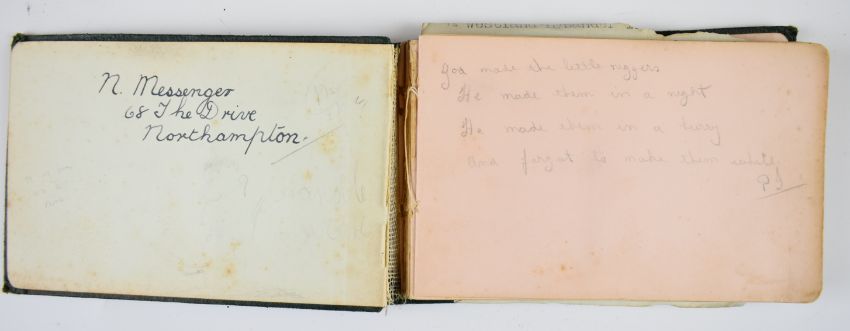 N. Messenger
68 The Drive
Northampton.
God made the little niggers
He made them in a night
He made them in a hurry
and forgot to make them white.